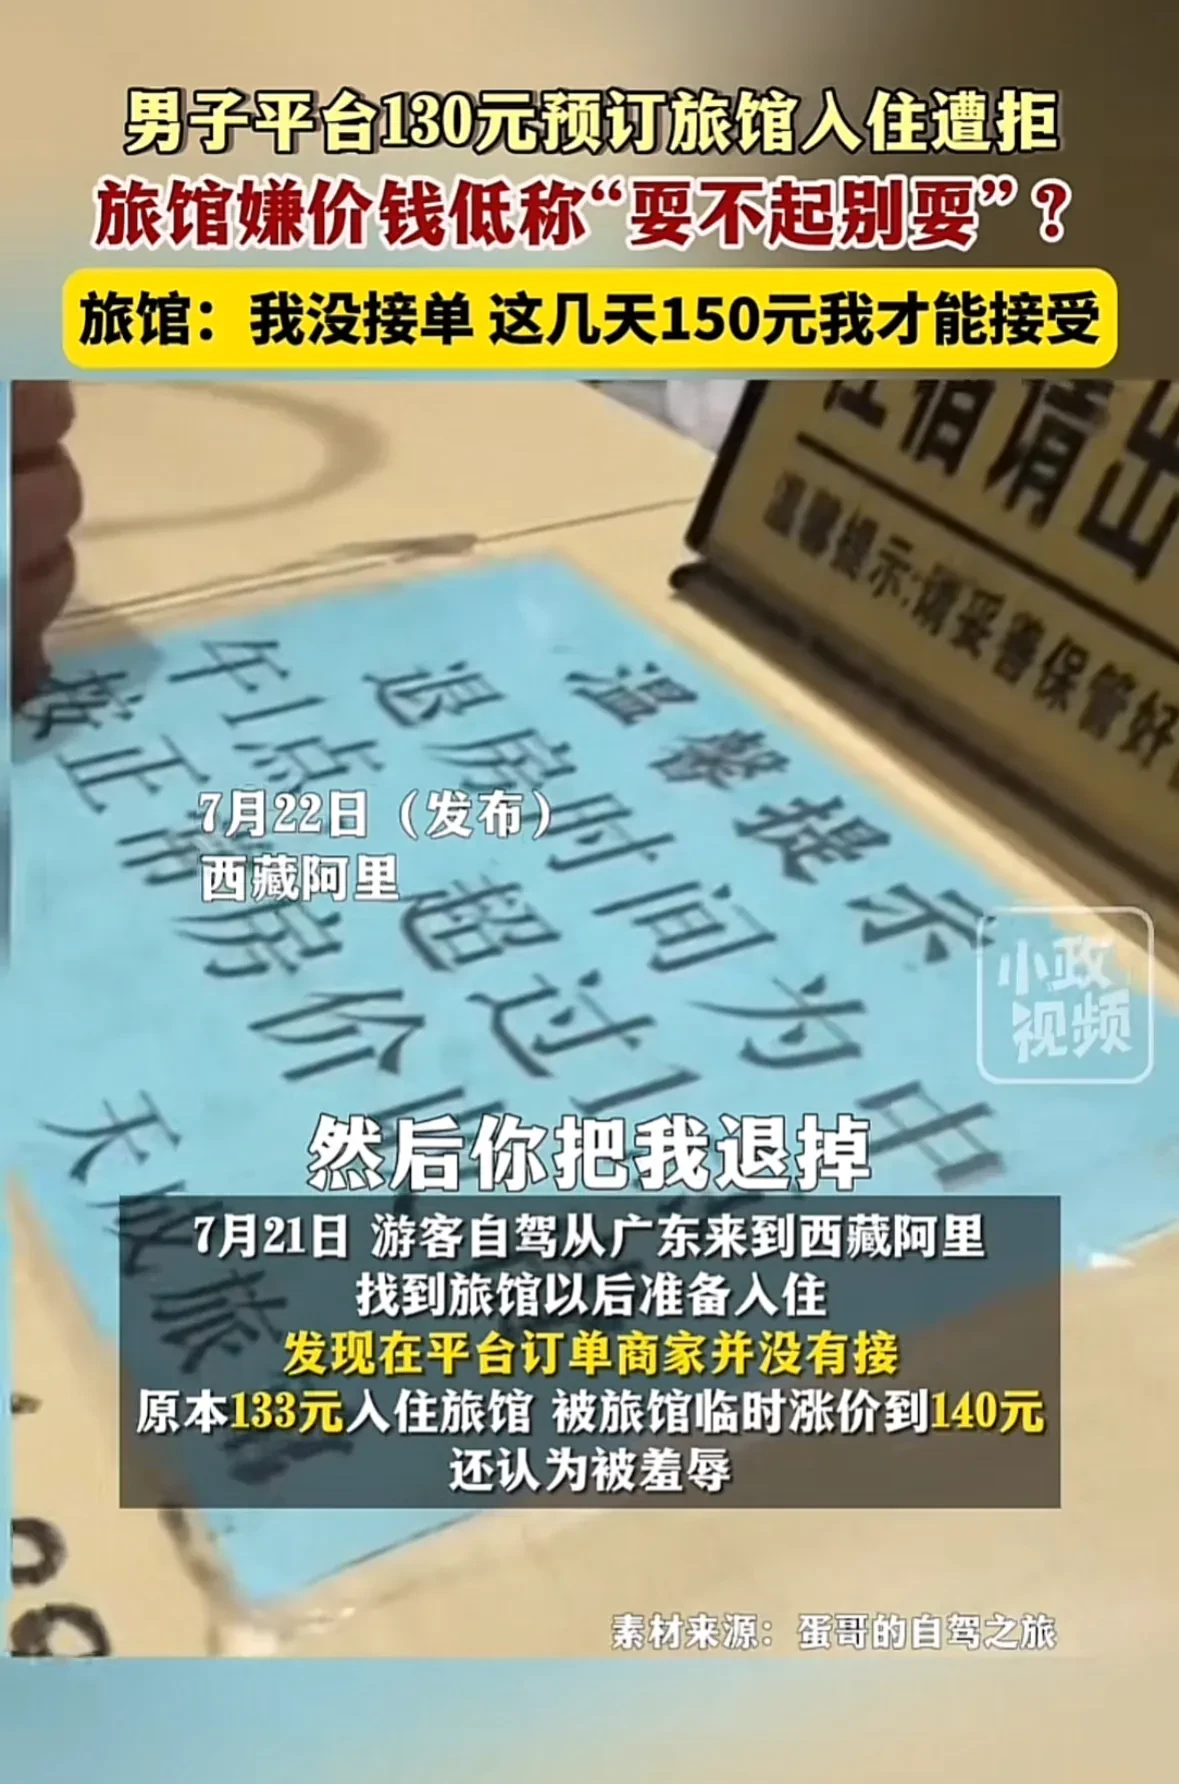 男子平台130元预订旅馆入住遭拒
旅馆嫌价钱低称“耍不起别耍”？
旅馆：我没接单 这几天150元我才能接受
住宿请出
温馨提示:请妥善保管好
温馨提示
退房时间为中
午1点 超过1
按正常房价
天成旅
7月22日（发布）
西藏阿里
小政
视频
然后你把我退掉
7月21日 游客自驾从广东来到西藏阿里
找到旅馆以后准备入住
发现在平台订单商家并没有接
原本133元入住旅馆 被旅馆临时涨价到140元
还认为被羞辱
素材来源：蛋哥的自驾之旅